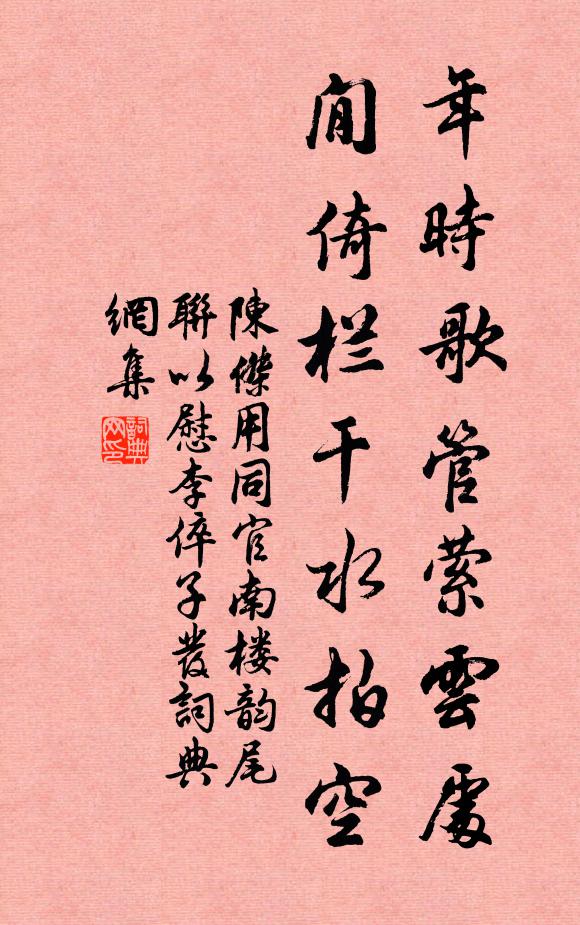 年時歌管縈雲處
閒倚栏干水拍空
陳傑用同官南楼韵尾
聯以慰李倅子發詞典
網集
詞典
网印